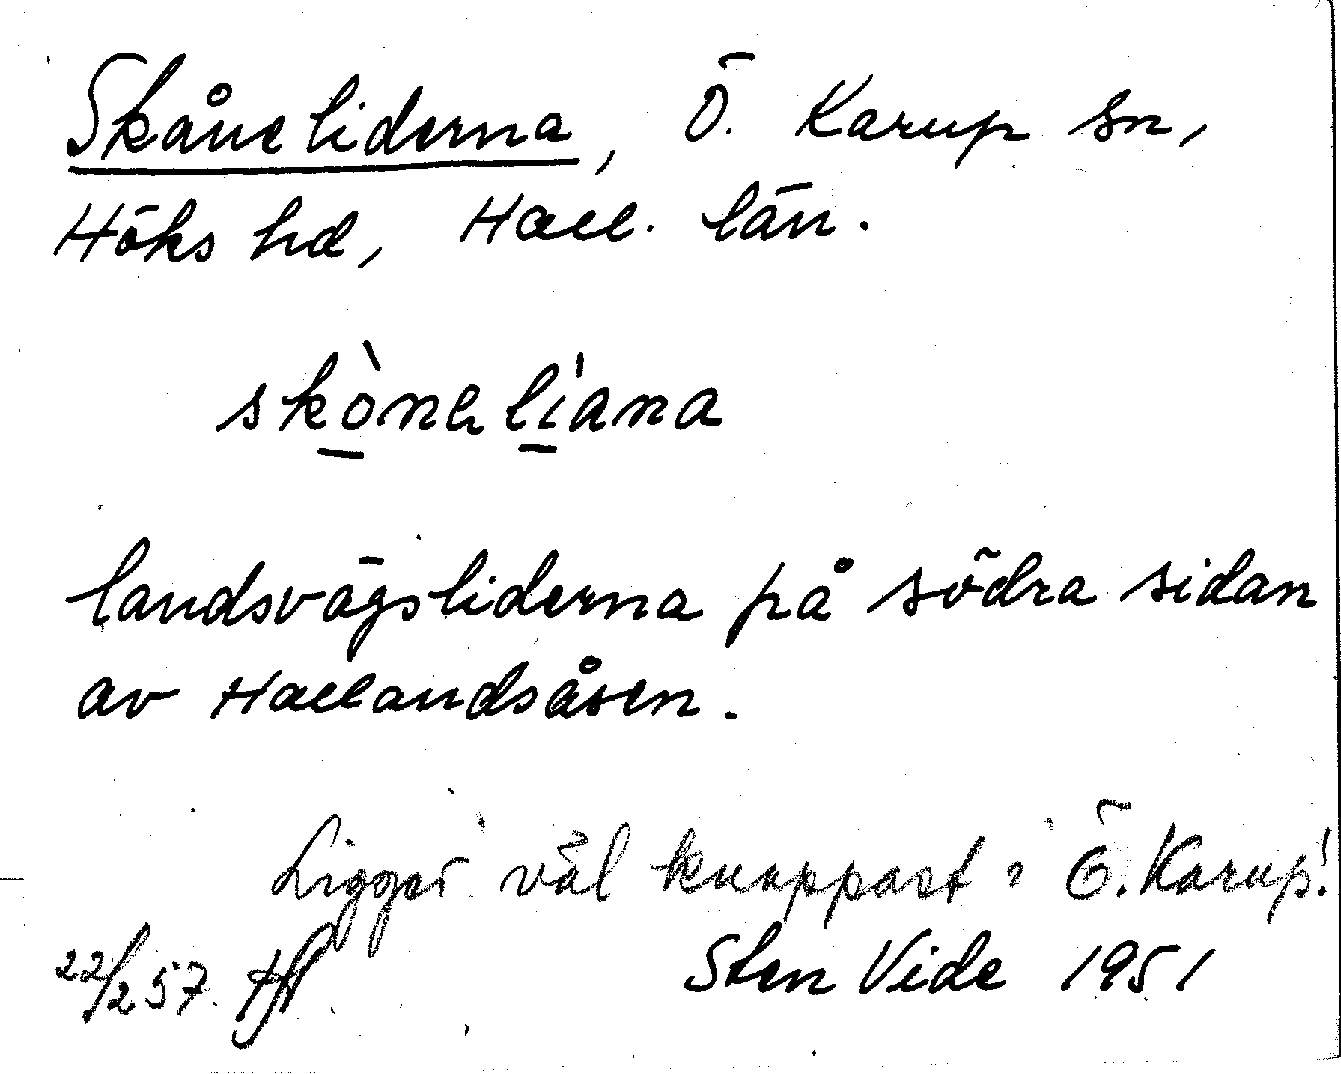 Skåneliderna, Ö. Karup sn,
Höks hd, Hall. län.
skò̱nəli̱'ana
landsvägsliderna på södra sidan
av Hallandsåsen.
Ligger väl knappast i Ö. Karup!
22/2 57.
Sten Vide 1951